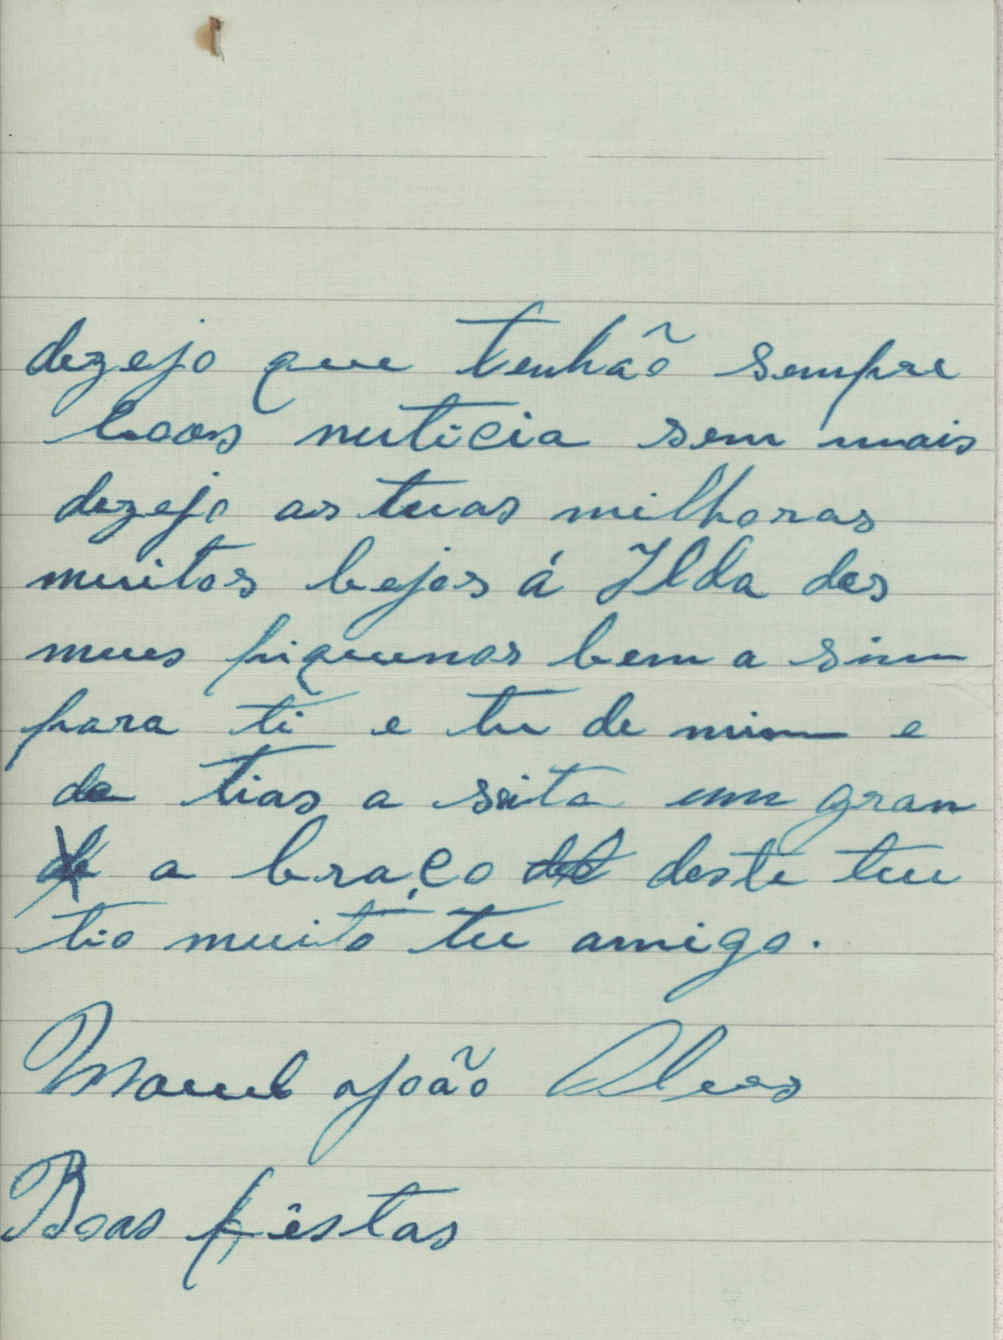 dezejo que tenhão sempre
boas nuticia sem mais
dezejo as tuas milhoras
muitos bejos á Ilda dos
meus piquenos bem a sim
para ti e tu de mim e
da tias a seita um gran
de a braço deste teu
tio muito tu amigo.
Manuel João Alves
Boas fêstas